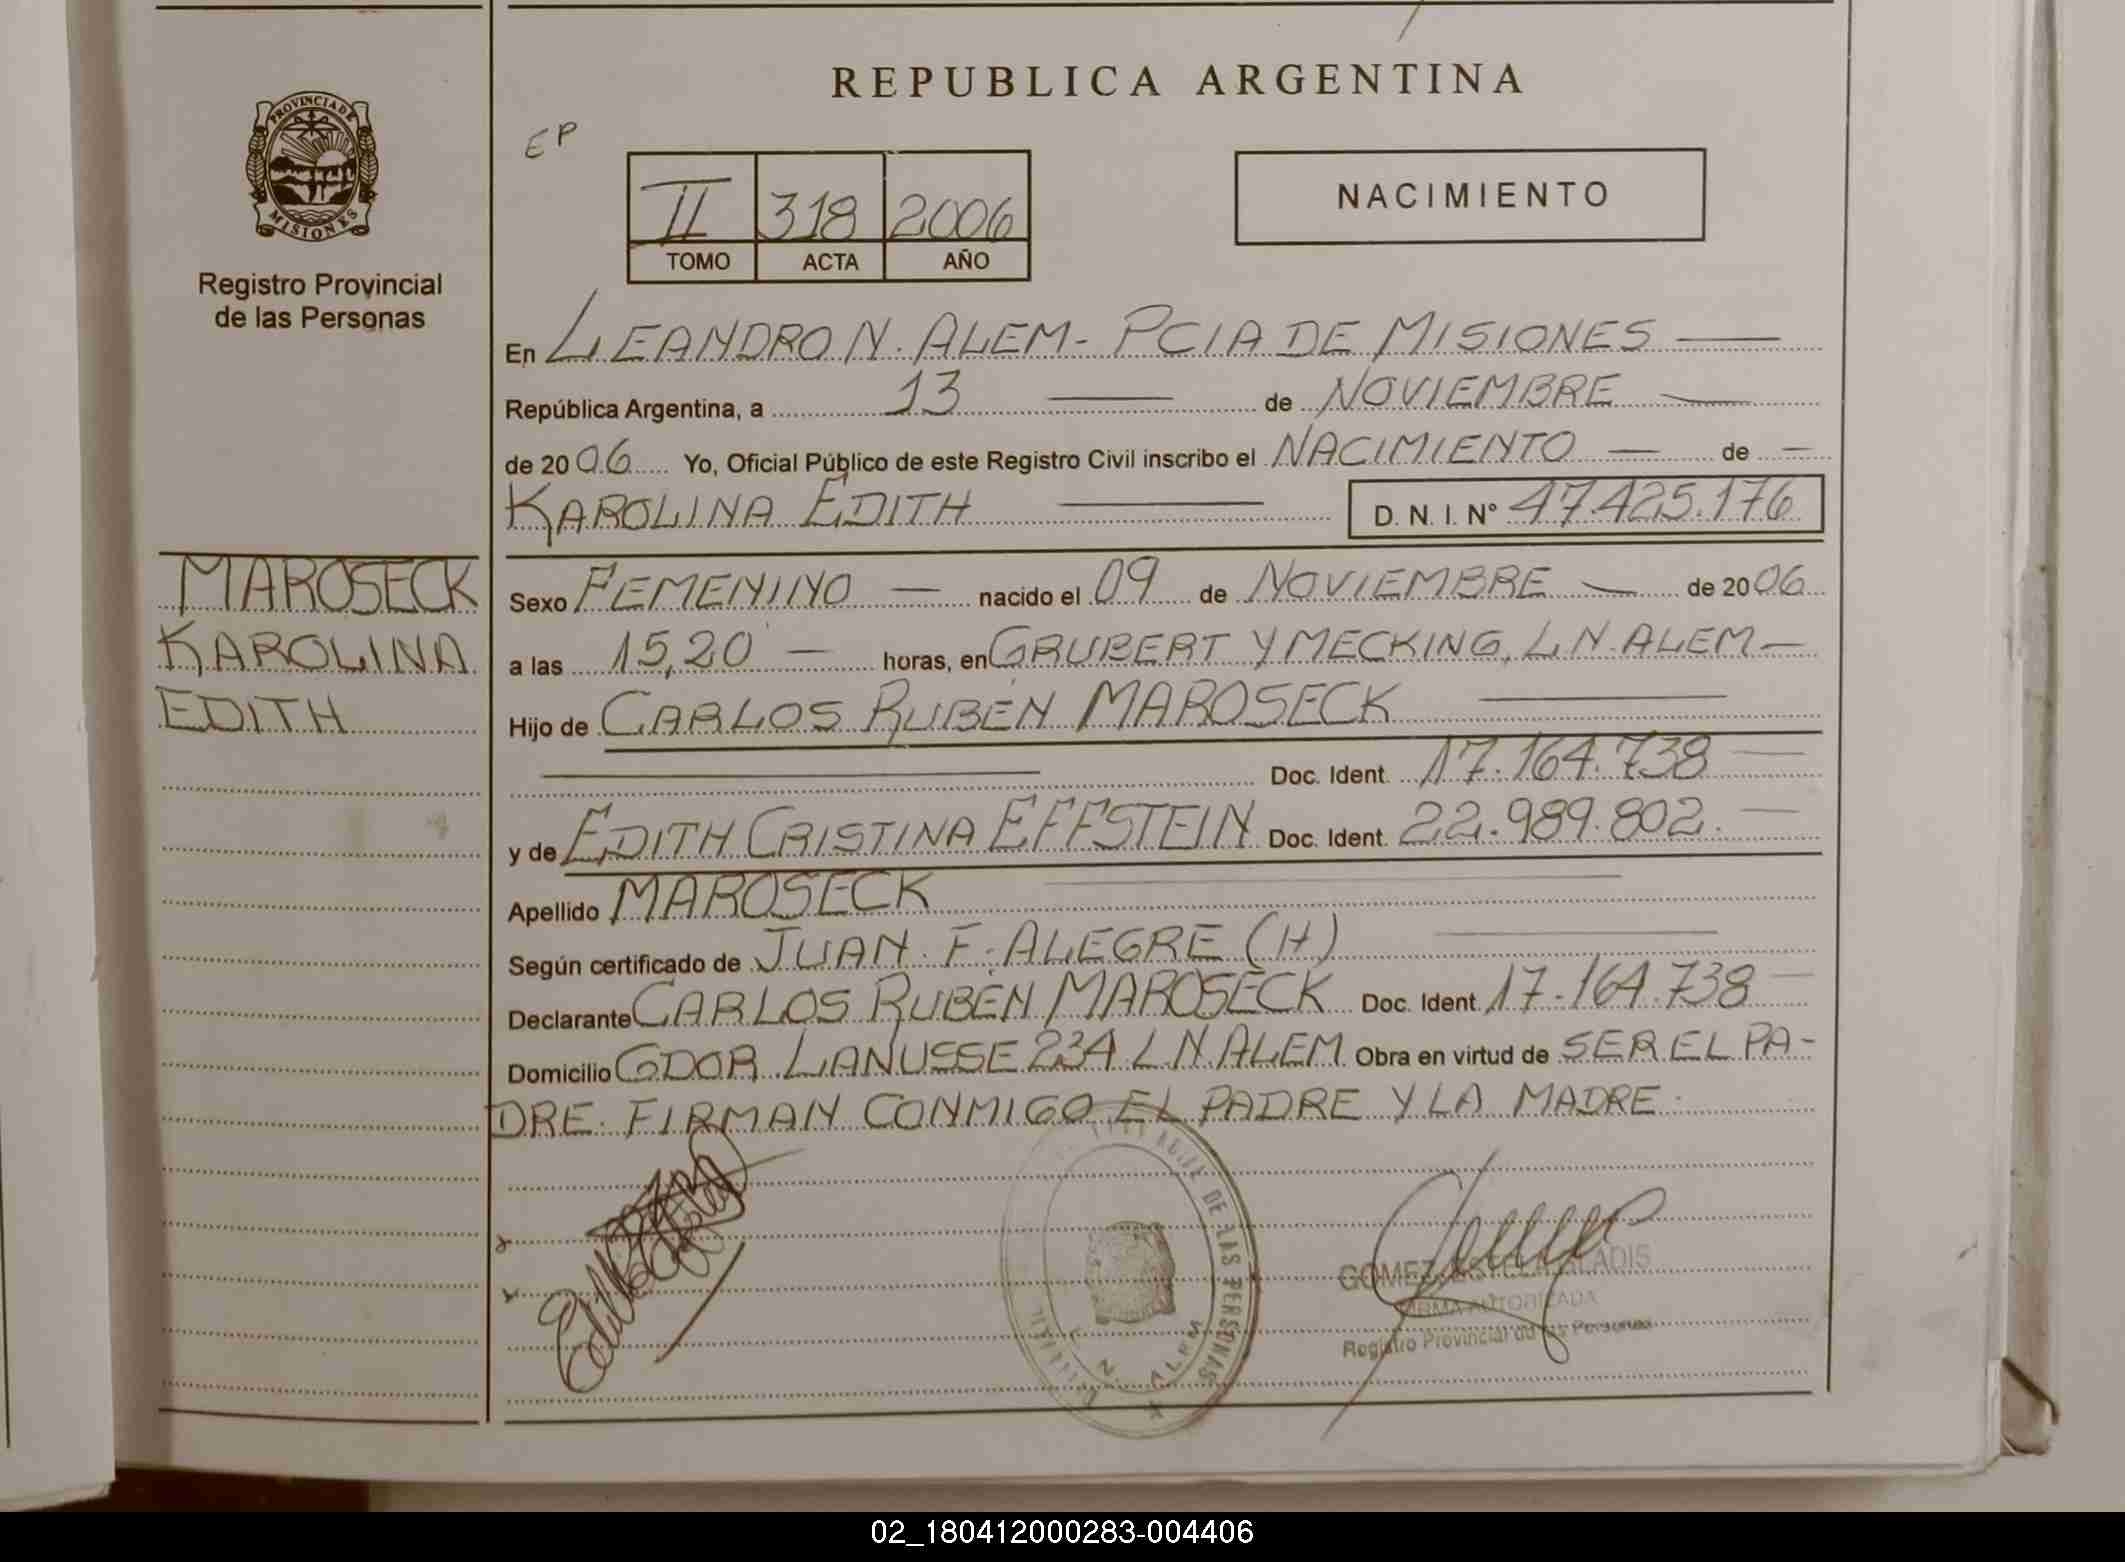 REPUBLICA ARGENTINA
PROVINCIA DE
MISIONES
Registro Provincial
de las Personas
EP
II 318 2006
TOMO ACTA AÑO
NACIMIENTO
En LEANDRO N. ALEM - PCIA DE MISIONES
República Argentina, a 13 de NOVIEMBRE
de 2006 Yo, Oficial Público de este Registro Civil inscribo el NACIMIENTO de
KAROLINA EDITH D. N. I. N° 47.425.176
MAROSECK
KAROLINA
EDITH
Sexo FEMENINO nacido el 09 de NOVIEMBRE de 2006
a las 15,20 horas, en GRUBERT Y MECKING, L N. ALEM
Hijo de CARLOS RUBÉN MAROSECK
Doc. Ident. 17.164.738
y de EDITH CRISTINA EFFSTEIN Doc. Ident. 22.989.802.
Apellido MAROSECK
Según certificado de JUAN F. ALEGRE (H)
Declarante CARLOS RUBÉN MAROSECK Doc. Ident. 17.164.738
Domicilio GDOR LANUSSE 234 L N. ALEM Obra en virtud de SER EL PA-
DRE. FIRMAN CONMIGO EL PADRE Y LA MADRE.
DE LAS PERSONAS
L N. ALEM
GOMEZ
FIRMA AUTORIZADA
Registro Provincial de las Personas
02_180412000283-004406